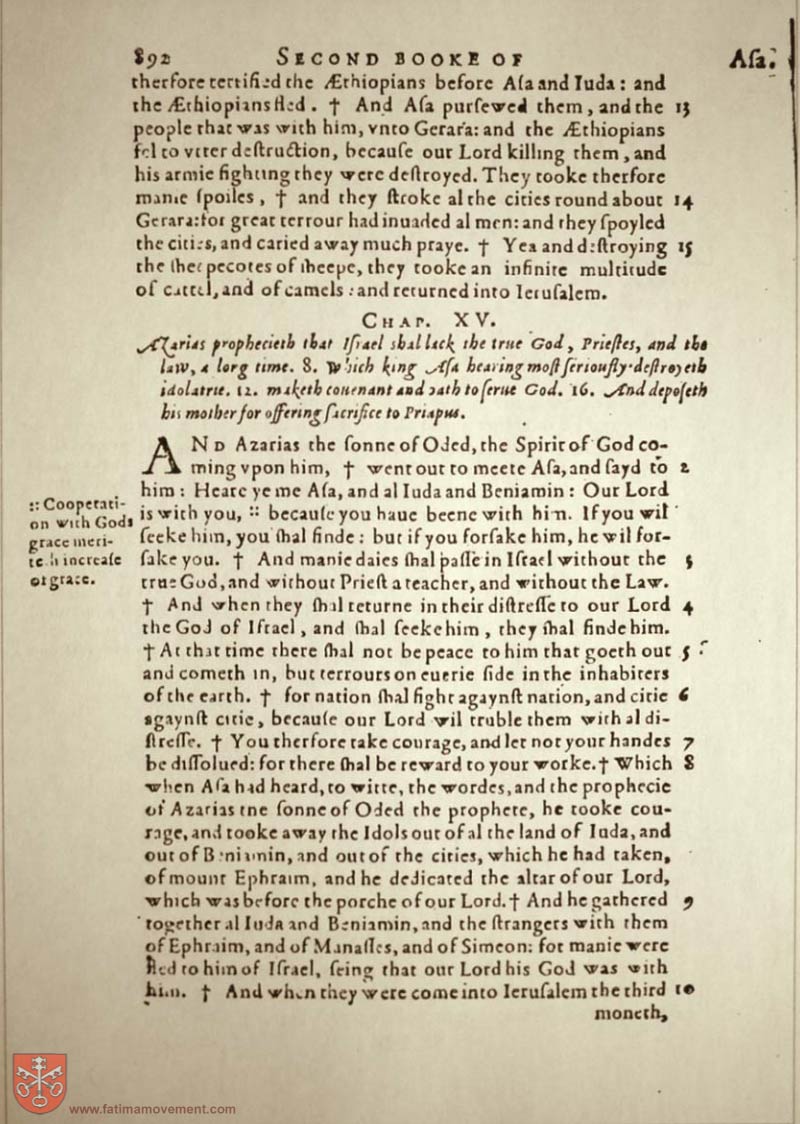 892 SECOND BOOKE OF Aſa.
therfore terrified the Æthiopians before Aſa and Iuda : and
the Æthiopians fled . † And Aſa purſewed them , and the 13
people that was with him, vnto Gerara: and the Æthiopians
fel to vtter deſtruction, becauſe our Lord killing them , and
his armie fighting they were deſtroyed. They tooke therfore
manie ſpoiles , † and they ſtroke al the cities round about 14
Gerara: for great terrour had inuaded al men: and they ſpoyled
the cities, and caried away much praye. † Yea and deſtroying 15
the ſheepecotes of ſheepe, they tooke an infinite multitude
of cattel, and of camels : and returned into Ieruſalem.
CHAP. XV.
Azarias prophecieth that Iſrael shal lack the true God , Prieſtes, and the
law, a long time. 8. Which king Aſa hearing moſt ſeriouſly deſtroyeth
idolatrie. 12. maketh couenant and oath to ſerue God. 16. And depoſeth
his mother for offering ſacrifice to Priapus.
AND Azarias the ſonne of Oded, the Spirit of God co-
ming vpon him, † went out to meete Aſa, and ſayd to 2
him : Heare ye me Aſa, and al Iuda and Beniamin : Our Lord
:: Cooperati-
on with Gods
grace meri-
teth increaſe
of grace.
is with you, :: becauſe you haue beene with him. If you wil
ſeeke him, you ſhal finde : but if you forſake him, he wil for-
ſake you. † And manie daies ſhal paſſe in Iſrael without the 3
true God, and without Prieſt a teacher, and without the Law.
† And when they ſhal returne in their diſtreſſe to our Lord 4
the God of Iſrael , and ſhal ſeeke him , they ſhal finde him.
† At that time there ſhal not be peace to him that goeth out 5
and cometh in, but terrours on euerie ſide in the inhabiters
of the earth. † for nation ſhal fight agaynſt nation, and citie 6
agaynſt citie, becauſe our Lord wil truble them with al di-
ſtreſſe. † You therfore take courage, and let not your handes 7
be diſſolued: for there ſhal be reward to your worke. † Which 8
when Aſa had heard, to witte, the wordes, and the prophecie
of Azarias the ſonne of Oded the prophete, he tooke cou-
rage, and tooke away the Idols out of al the land of Iuda, and
out of Beniamin, and out of the cities, which he had taken,
of mount Ephraim, and he dedicated the altar of our Lord,
which was before the porche of our Lord. † And he gathered 9
together al Iuda and Beniamin, and the ſtrangers with them
of Ephraim, and of Manaſſes, and of Simeon: for manie were
fled to him of Iſrael, ſeing that our Lord his God was with
him. † And when they were come into Ieruſalem the third 10
moneth,
www.fatimamovement.com